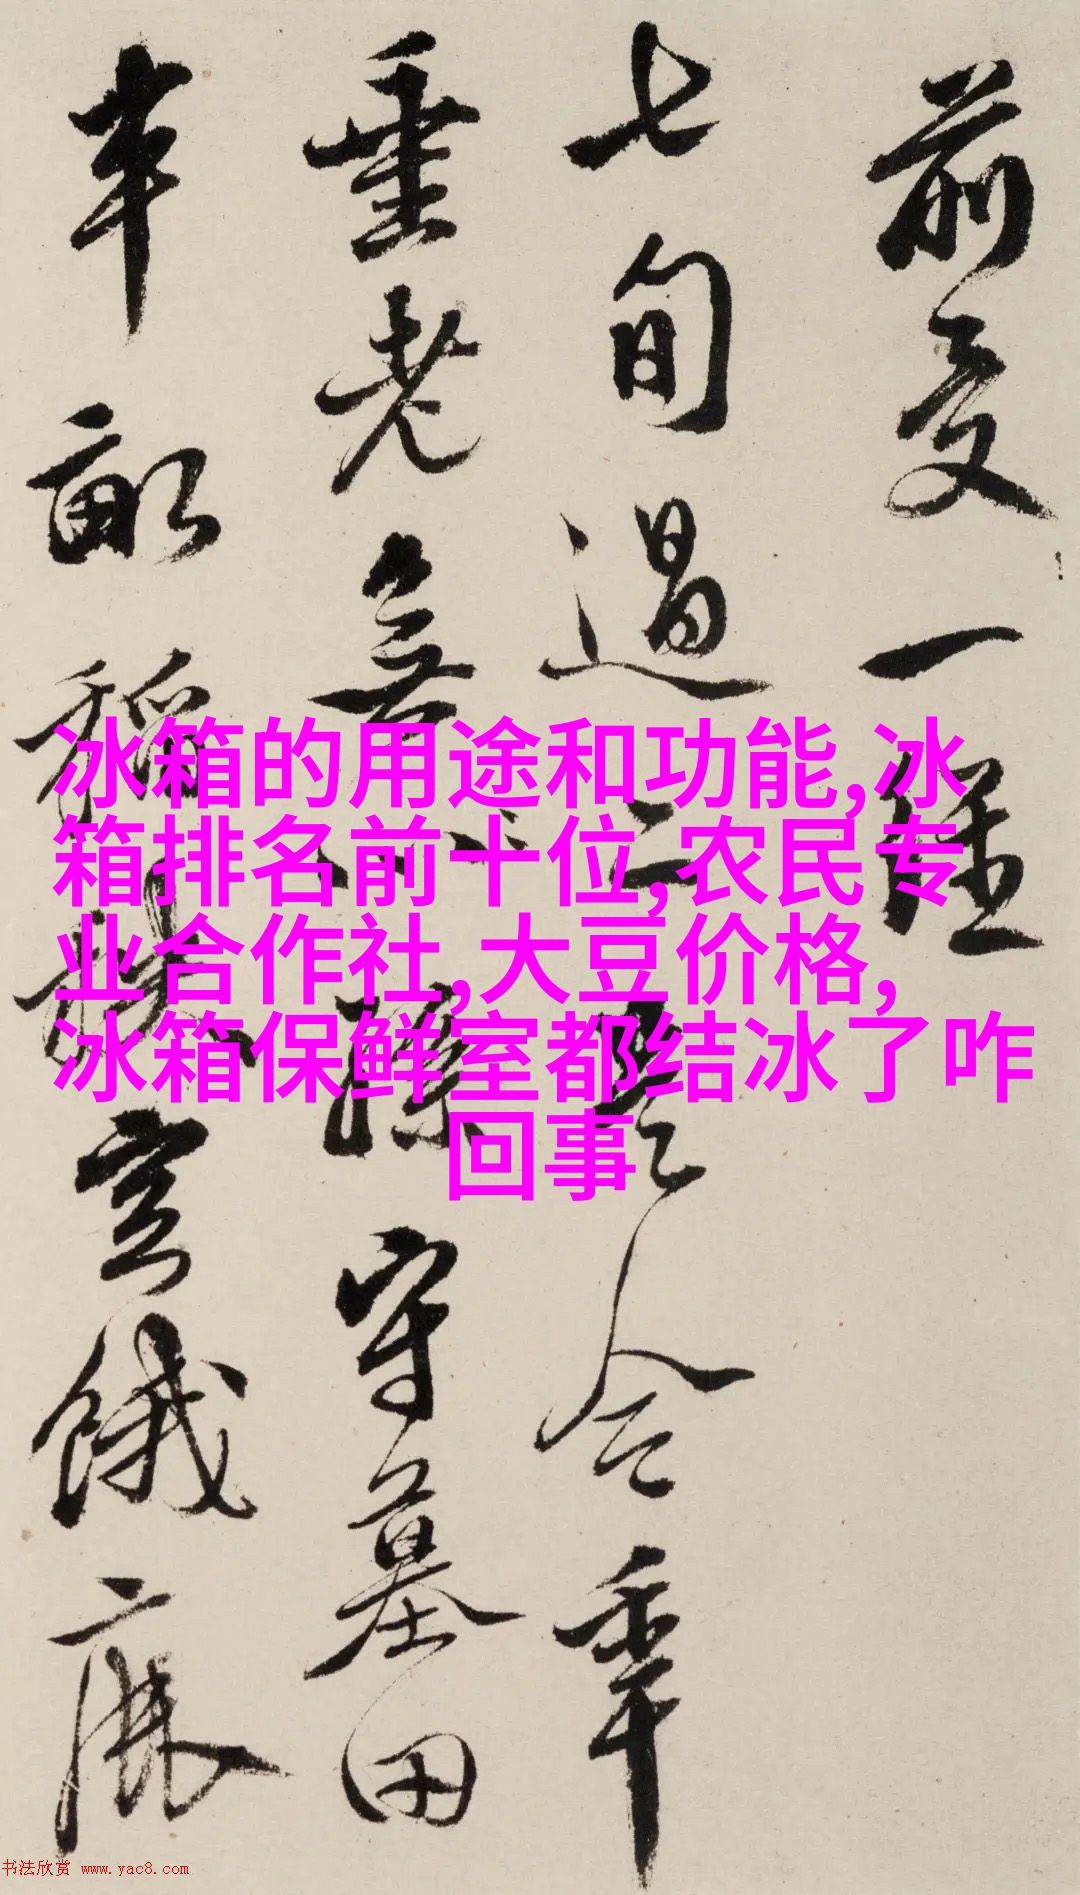 前受一
七旬過二是今年
垂老無孫守墓田
半畝稻空餓
冰箱的用途和功能,冰
箱排名前十位,农民专
业合作社,大豆价格,
冰箱保鲜室都结冰了咋
回事
书法欣赏 www.yac8.com